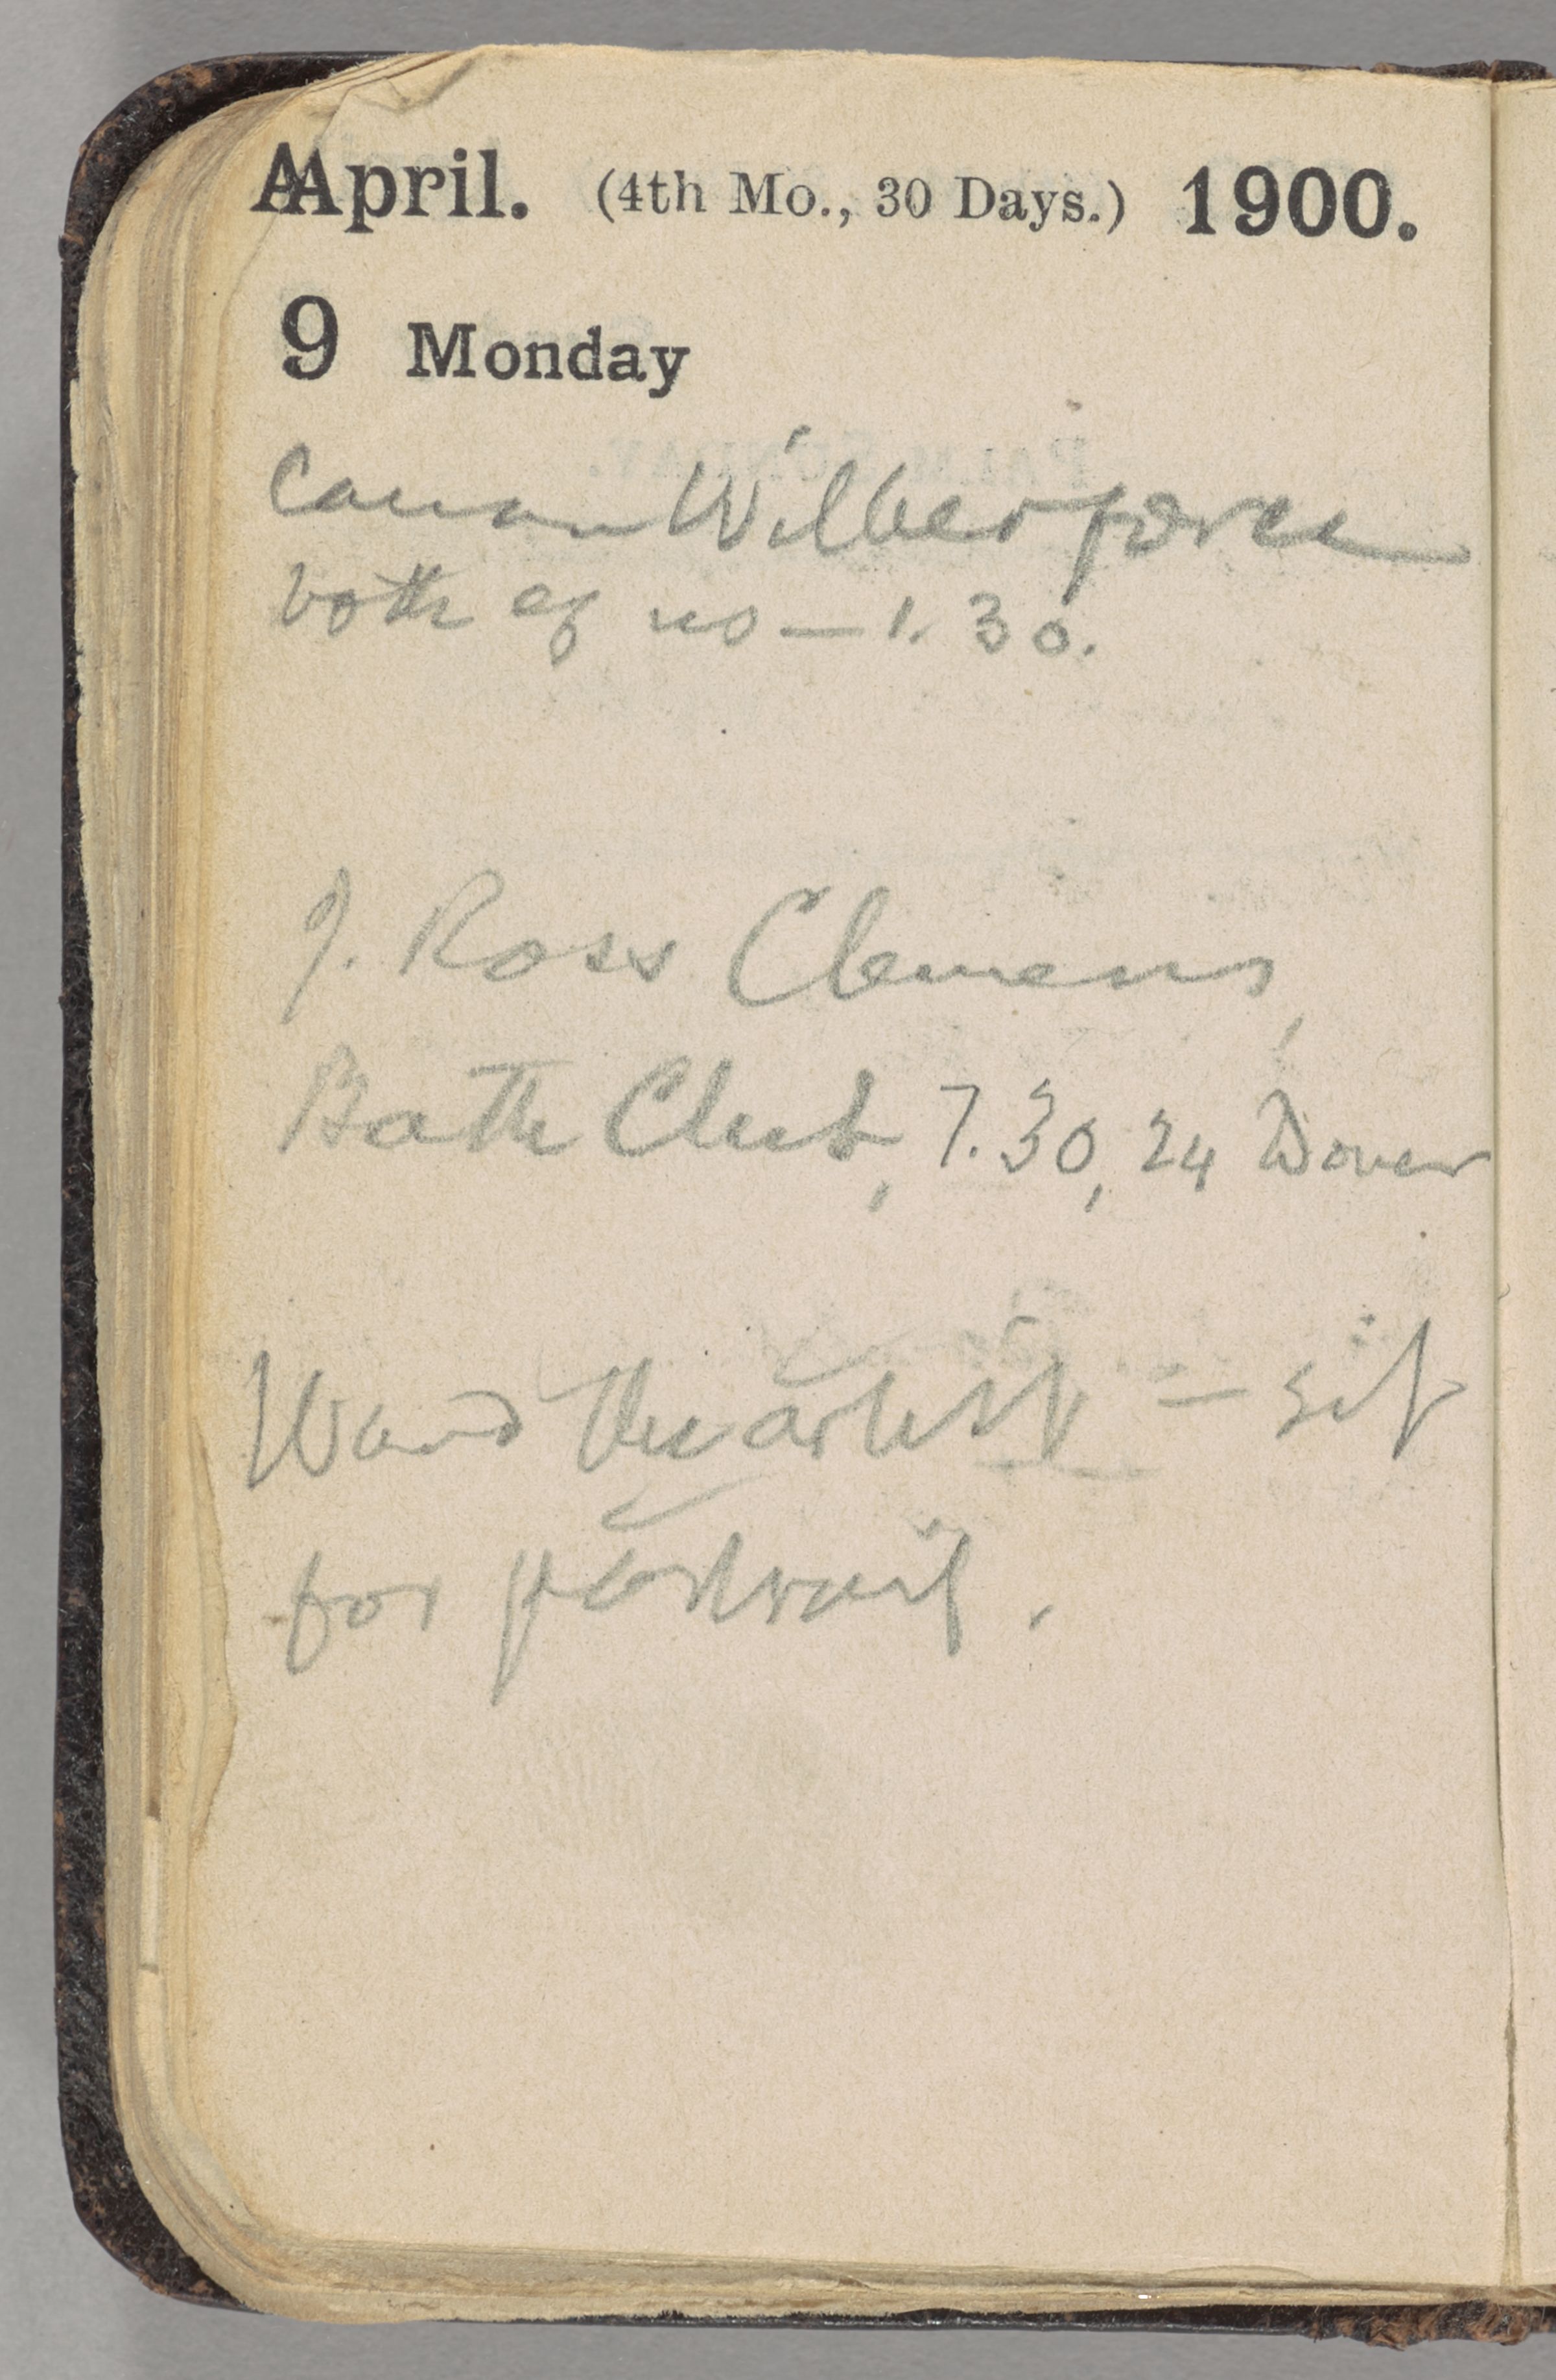 April. (4th Mo., 30 Days.) 1900.
9 Monday
Canon Wilberforce
both of us — 1.30.
J. Ross Clemens,
Bath Club, 7.30, 24 Dover
Ward the artist — sit
for portrait.